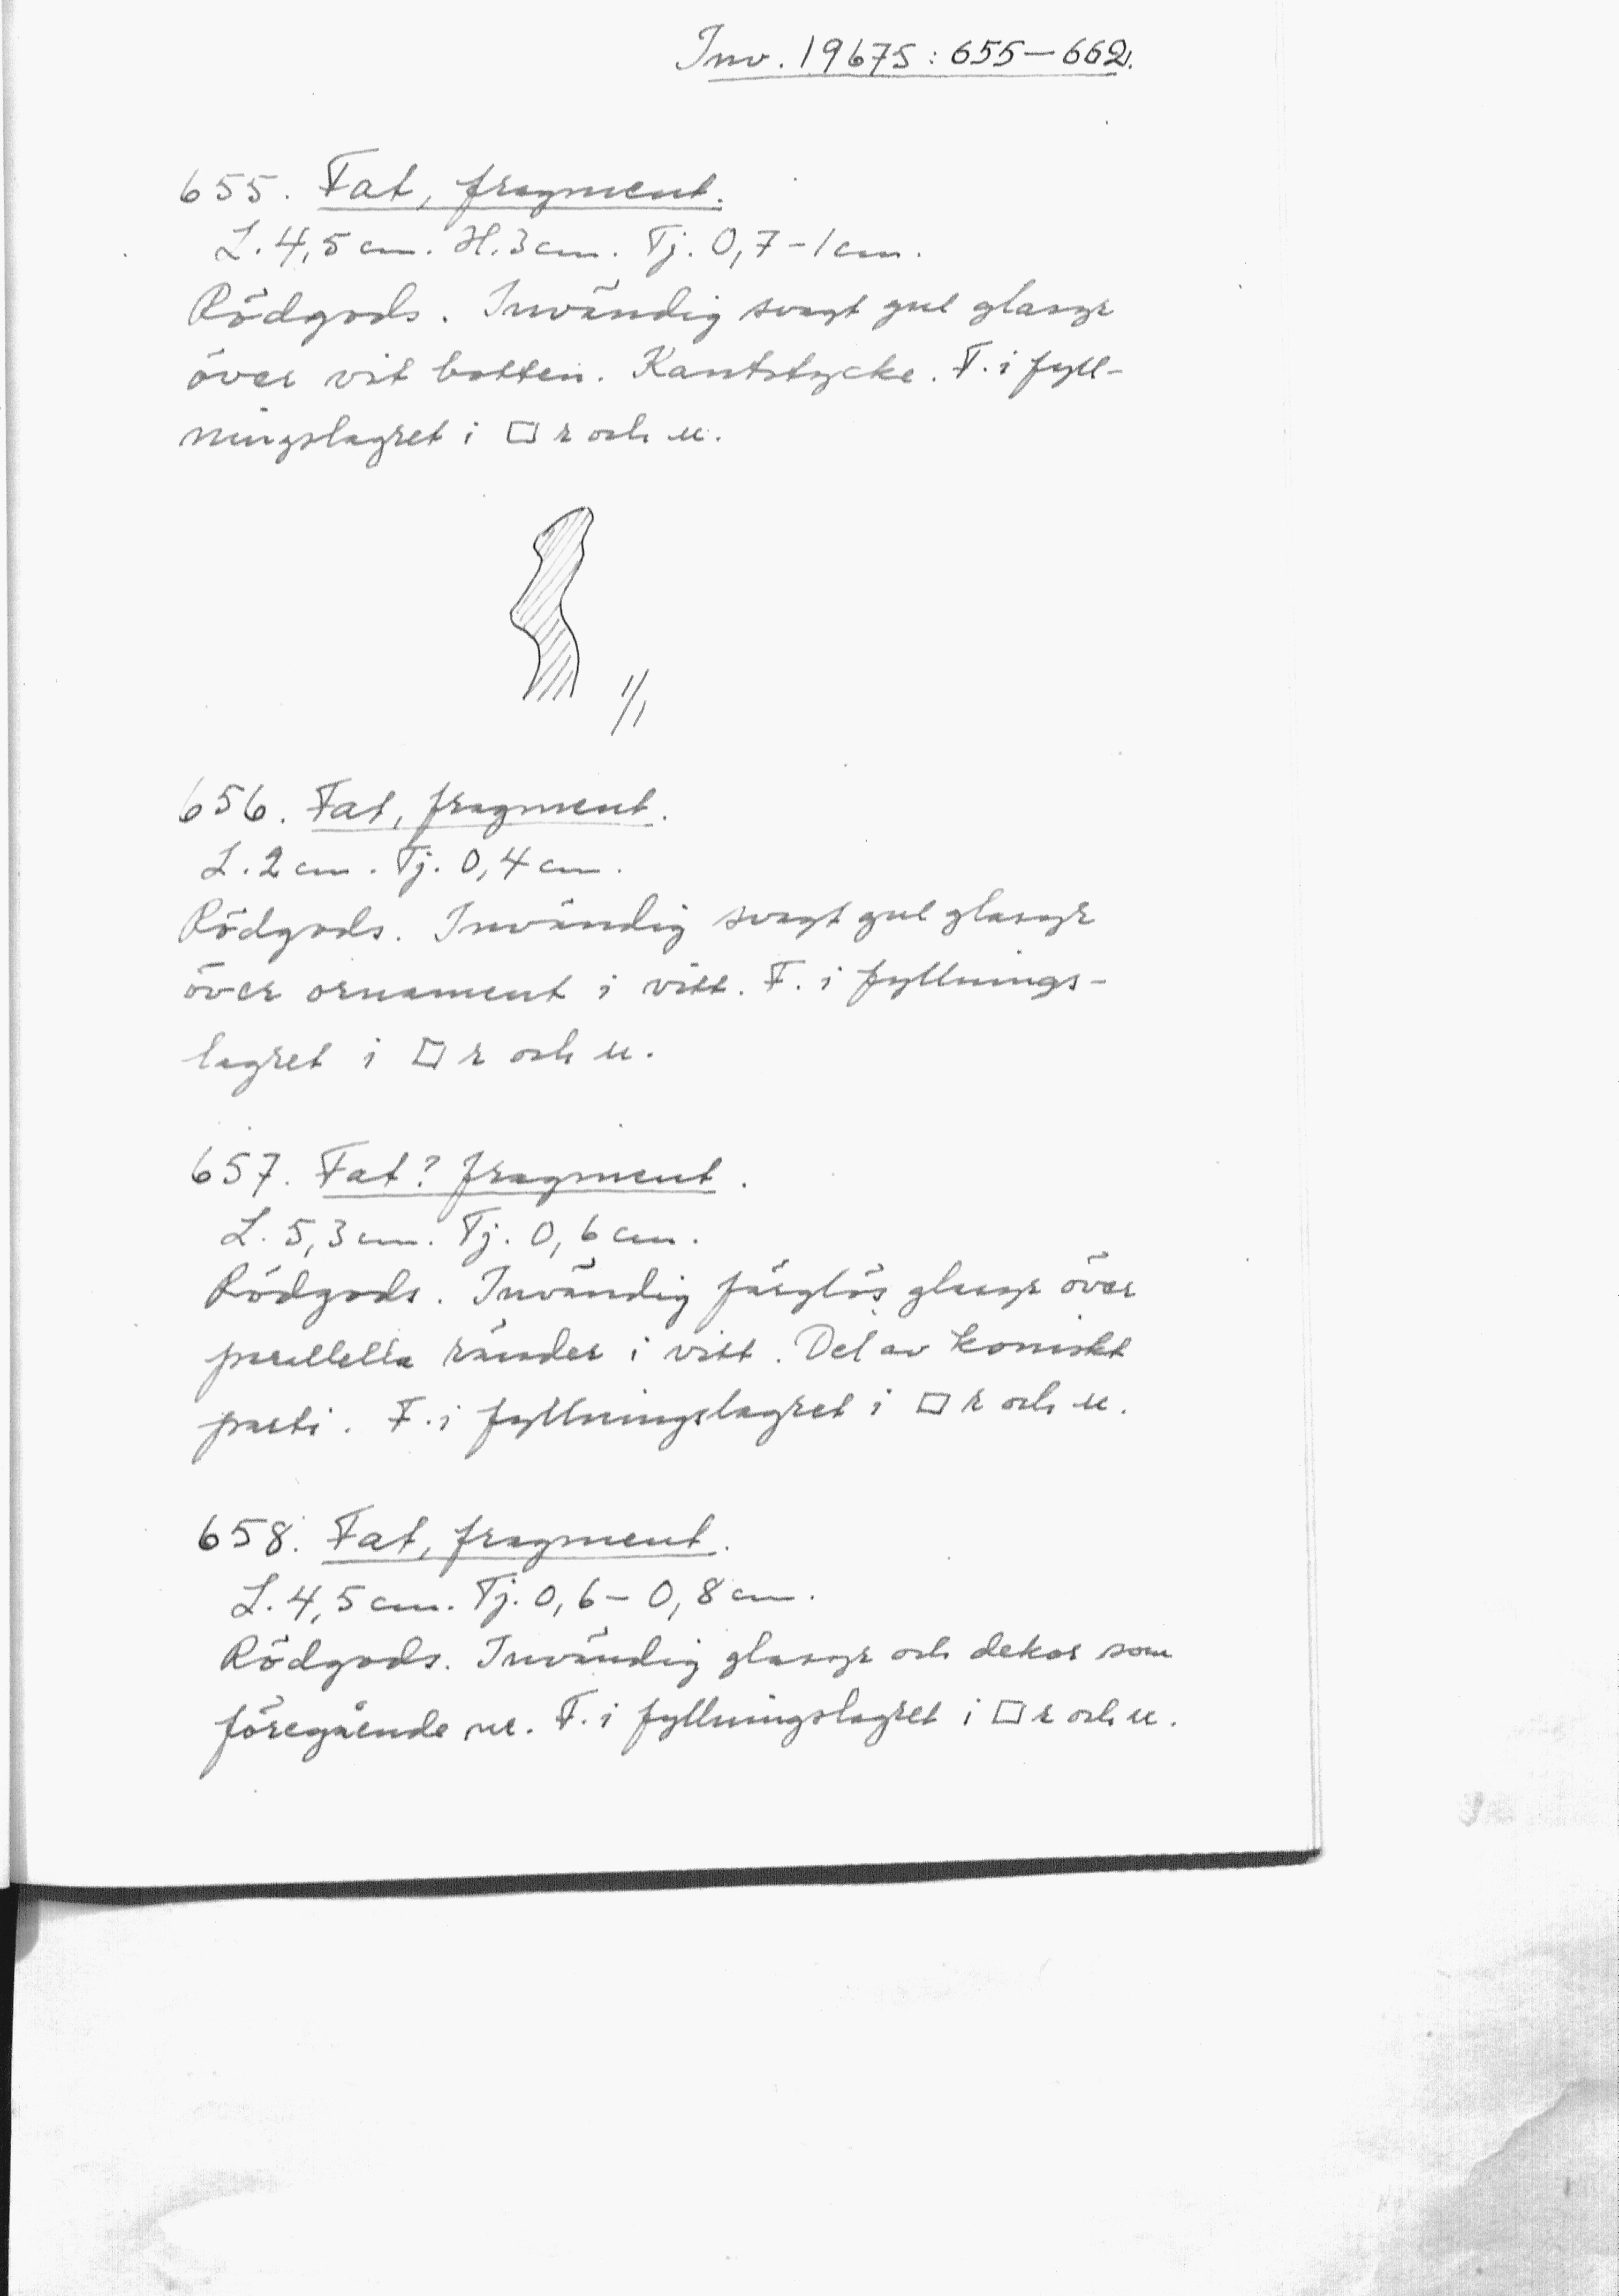 Inv. 19675:655—662.
655. Fat, fragment.
L. 4,5 cm. H. 3 cm. Tj. 0,7-1 cm.
Rödgods. Invändig svagt gul glasyr
över vit botten. Kantstycke. F. i fyll-
ningslagret i □ r och u.
1/1
656. Fat, fragment.
L. 2 cm. Tj. 0,4 cm.
Rödgods. Invändig svagt gul glasyr
över ornament i vitt. F. i fyllnings-
lagret i □ r och u.
657. Fat? fragment.
L. 5,3 cm. Tj. 0,6 cm.
Rödgods. Invändig färglös glasyr över
parallella ränder i vitt. Del av koniskt
parti. F. i fyllningslagret i □ r och u.
658. Fat, fragment.
L. 4,5 cm. Tj. 0,6-0,8 cm.
Rödgods. Invändig glasyr och dekor som
föregående nr. F. i fyllningslagret i □ r och u.